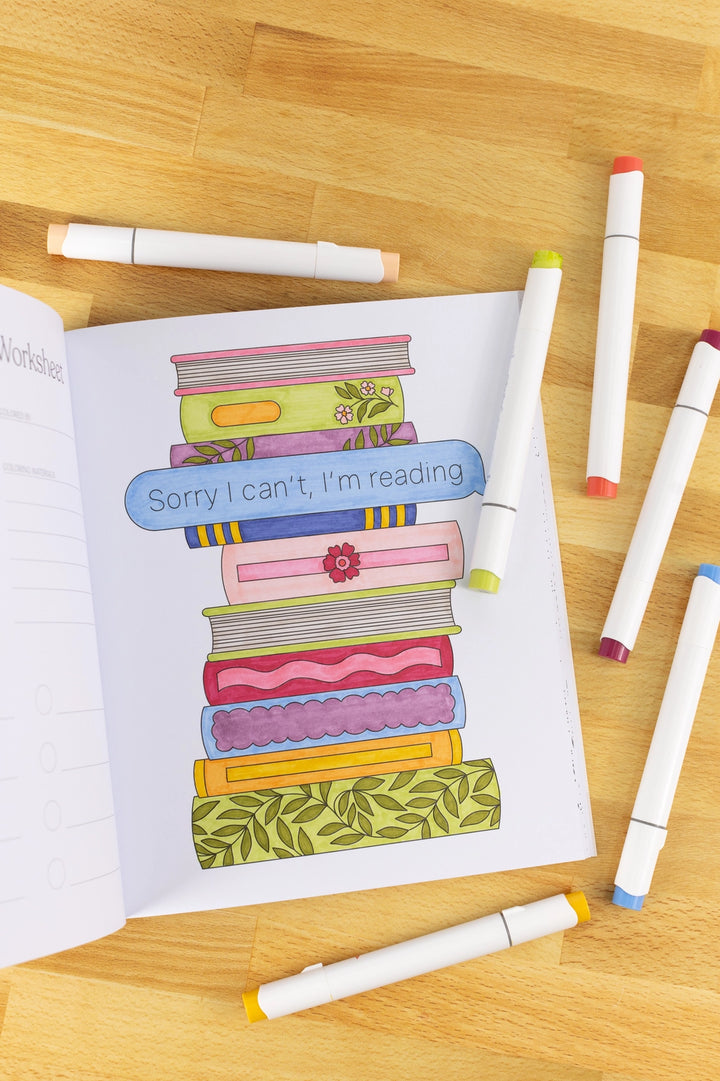 Worksheet
COLORED BY:
COLORING MATERIALS
Sorry I can't, I'm reading